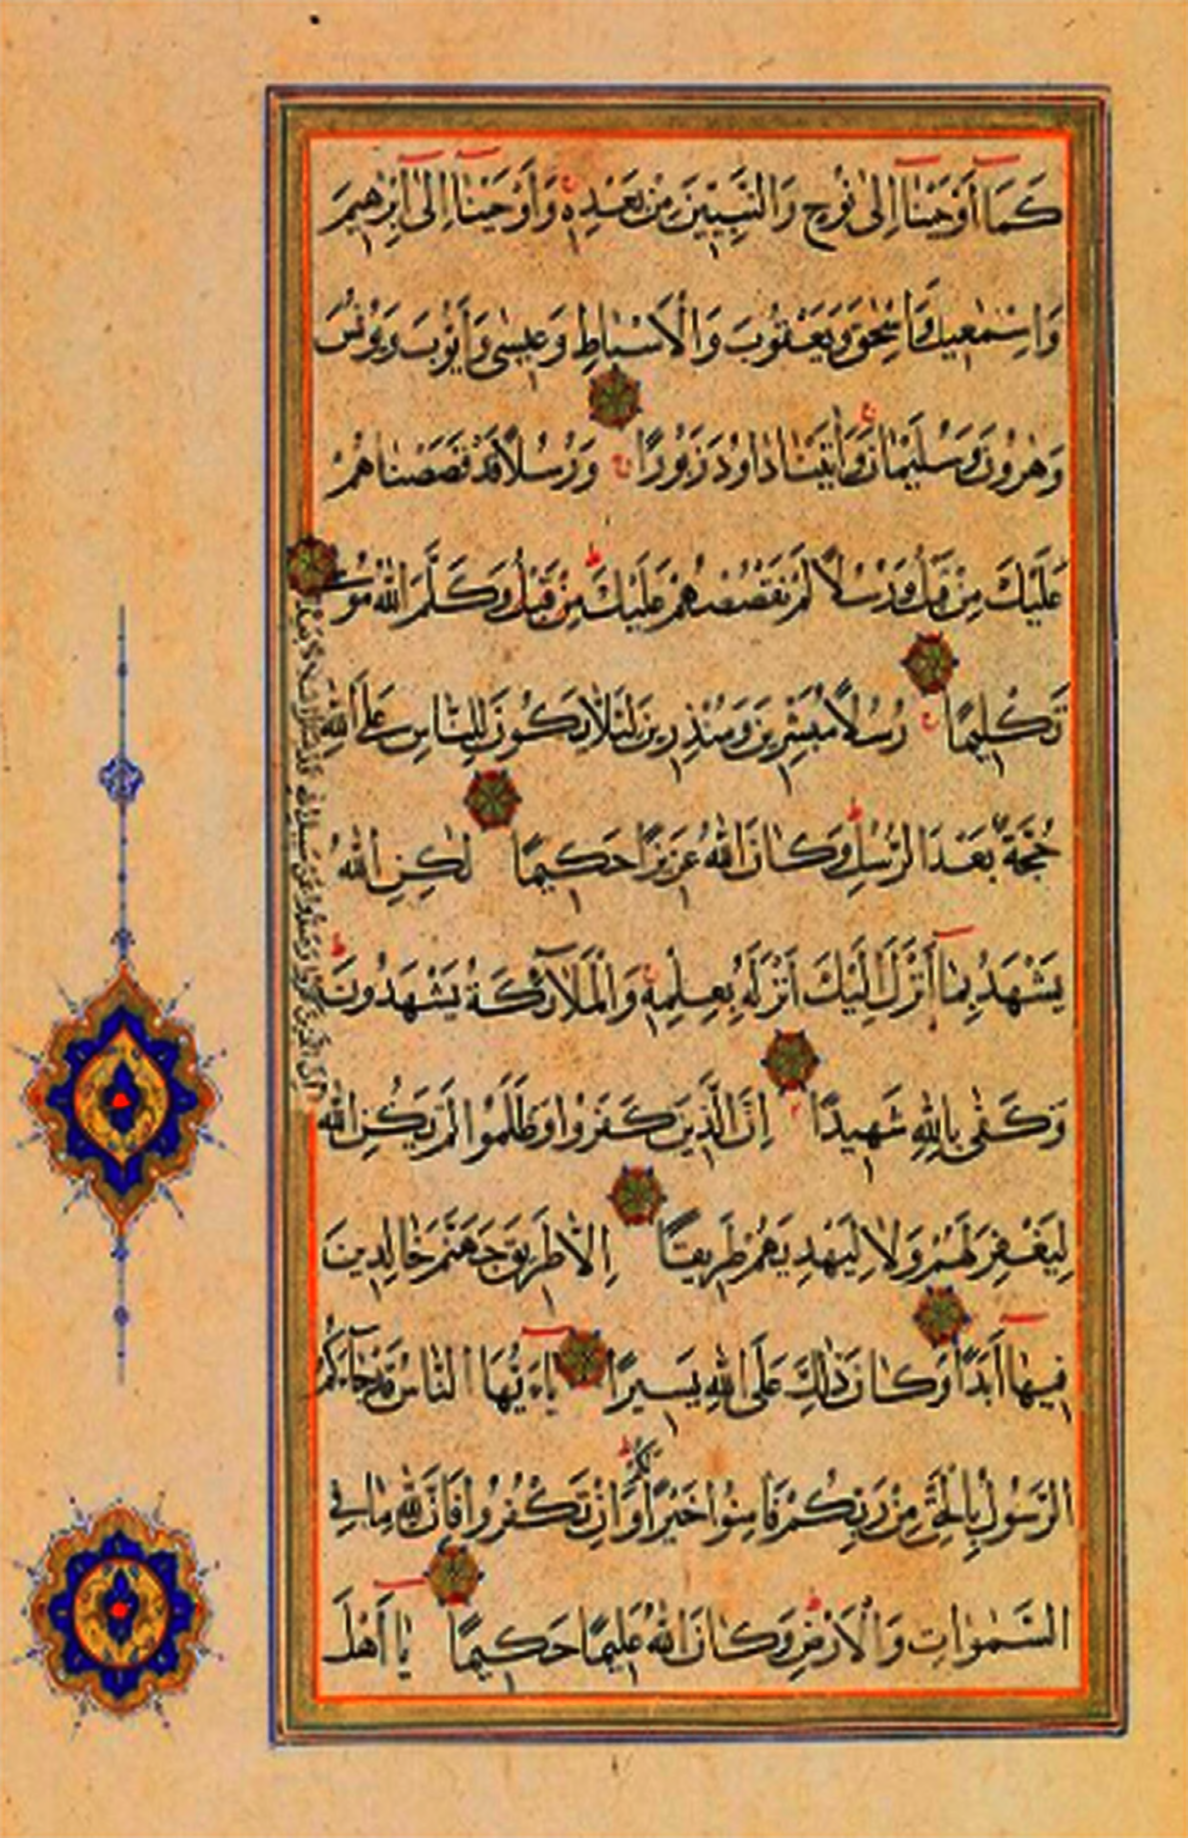 كَمَا أَوْحَيْنَا إِلٰى نُوحٍ وَالنَّبِيِّينَ مِنْ بَعْدِهِ وَأَوْحَيْنَا إِلٰى إِبْرٰهِيمَ
وَإِسْمٰعِيلَ وَإِسْحٰقَ وَيَعْقُوبَ وَالْأَسْبَاطِ وَعِيسٰى وَأَيُّوبَ وَيُونُسَ
وَهٰرُونَ وَسُلَيْمَانَ وَاٰتَيْنَا دَاوُدَ زَبُورًا وَرُسُلًا قَدْ قَصَصْنَاهُمْ
عَلَيْكَ مِنْ قَبْلُ وَرُسُلًا لَمْ نَقْصُصْهُمْ عَلَيْكَ مِنْ قَبْلُ وَكَلَّمَ اللّٰهُ مُوسٰى
تَكْلِيمًا رُسُلًا مُبَشِّرِينَ وَمُنْذِرِينَ لِئَلَّا يَكُونَ لِلنَّاسِ عَلَى اللّٰهِ
حُجَّةٌ بَعْدَ الرُّسُلِ وَكَانَ اللّٰهُ عَزِيزًا حَكِيمًا لٰكِنِ اللّٰهُ
يَشْهَدُ بِمَا أَنْزَلَ إِلَيْكَ أَنْزَلَهُ بِعِلْمِهِ وَالْمَلَائِكَةُ يَشْهَدُونَ
وَكَفٰى بِاللّٰهِ شَهِيدًا إِنَّ الَّذِينَ كَفَرُوا وَظَلَمُوا لَمْ يَكُنِ اللّٰهُ
لِيَغْفِرَ لَهُمْ وَلَا لِيَهْدِيَهُمْ طَرِيقًا إِلَّا طَرِيقَ جَهَنَّمَ خَالِدِينَ
فِيهَا أَبَدًا وَكَانَ ذٰلِكَ عَلَى اللّٰهِ يَسِيرًا يَاءَيُّهَا النَّاسُ قَدْ جَاءَكُمُ
الرَّسُولُ بِالْحَقِّ مِنْ رَبِّكُمْ فَاٰمِنُوا خَيْرًا لَكُمْ وَإِنْ تَكْفُرُوا فَإِنَّ لِلّٰهِ مَا فِي
السَّمٰوَاتِ وَالْأَرْضِ وَكَانَ اللّٰهُ عَلِيمًا حَكِيمًا يَا أَهْلَ
إِنَّ الَّذِينَ كَفَرُوا وَصَدُّوا عَنْ سَبِيلِ اللّٰهِ قَدْ ضَلُّوا ضَلَالًا بَعِيدًا